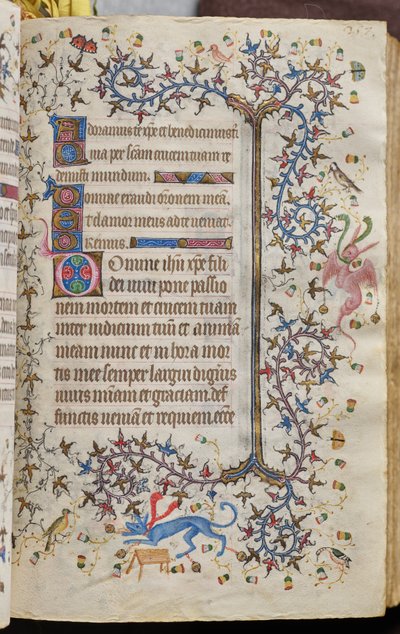 Adoramus te xpe et benedicimus ti
quia per scam crucem tuam re
demisti mundum.
Domine exaudi oronem meā.
Et clamor meus ad te veniat.
Oremus.
Domine ihu xpe fili
dei vivi pone passio
nem mortem et crucem tuam
inter iudicium tuū et animā
meam nunc et in hora mor
tis mee semper largiri
vivis et graciam def
functis veniā et requiem ecce